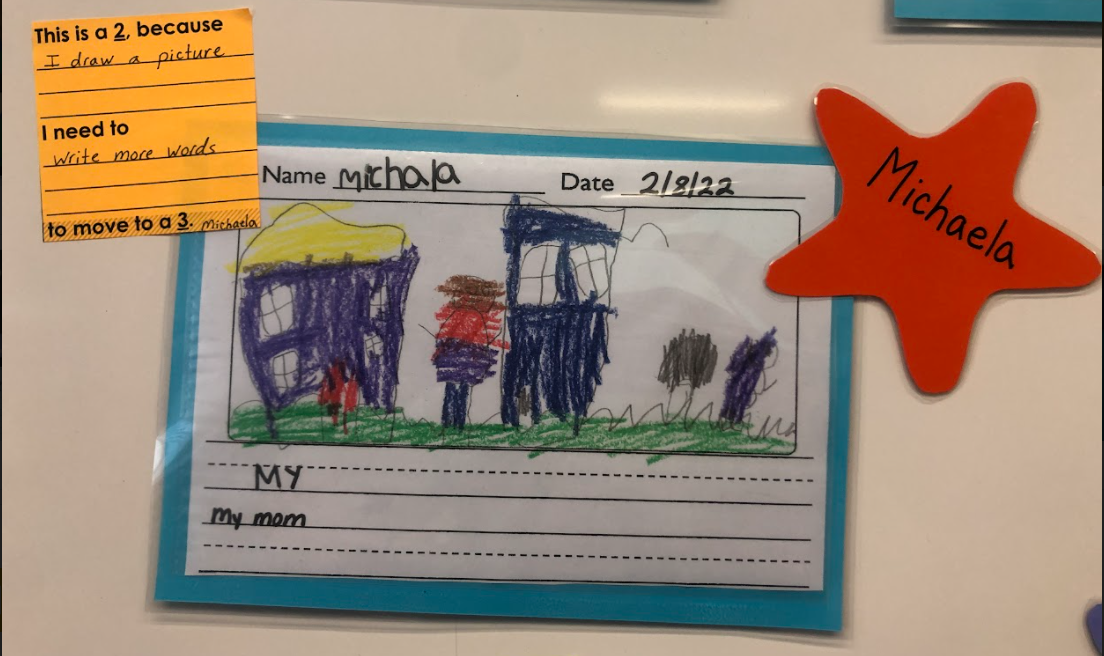 This is a 2, because
I draw a picture
I need to
write more words
to move to a 3. Michaela
Name Michala Date 2/8/22
MY
my mom
Michaela